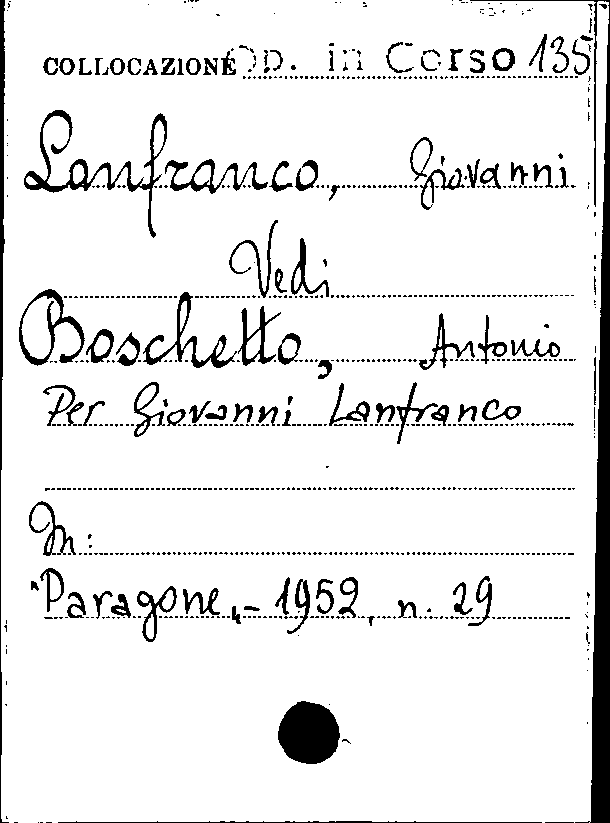 COLLOCAZIONE Op. in Corso 135
Lanfranco, Giovanni
Vedi
Boschetto, Antonio
Per Giovanni Lanfranco
In:
"Paragone„- 1952, n. 29